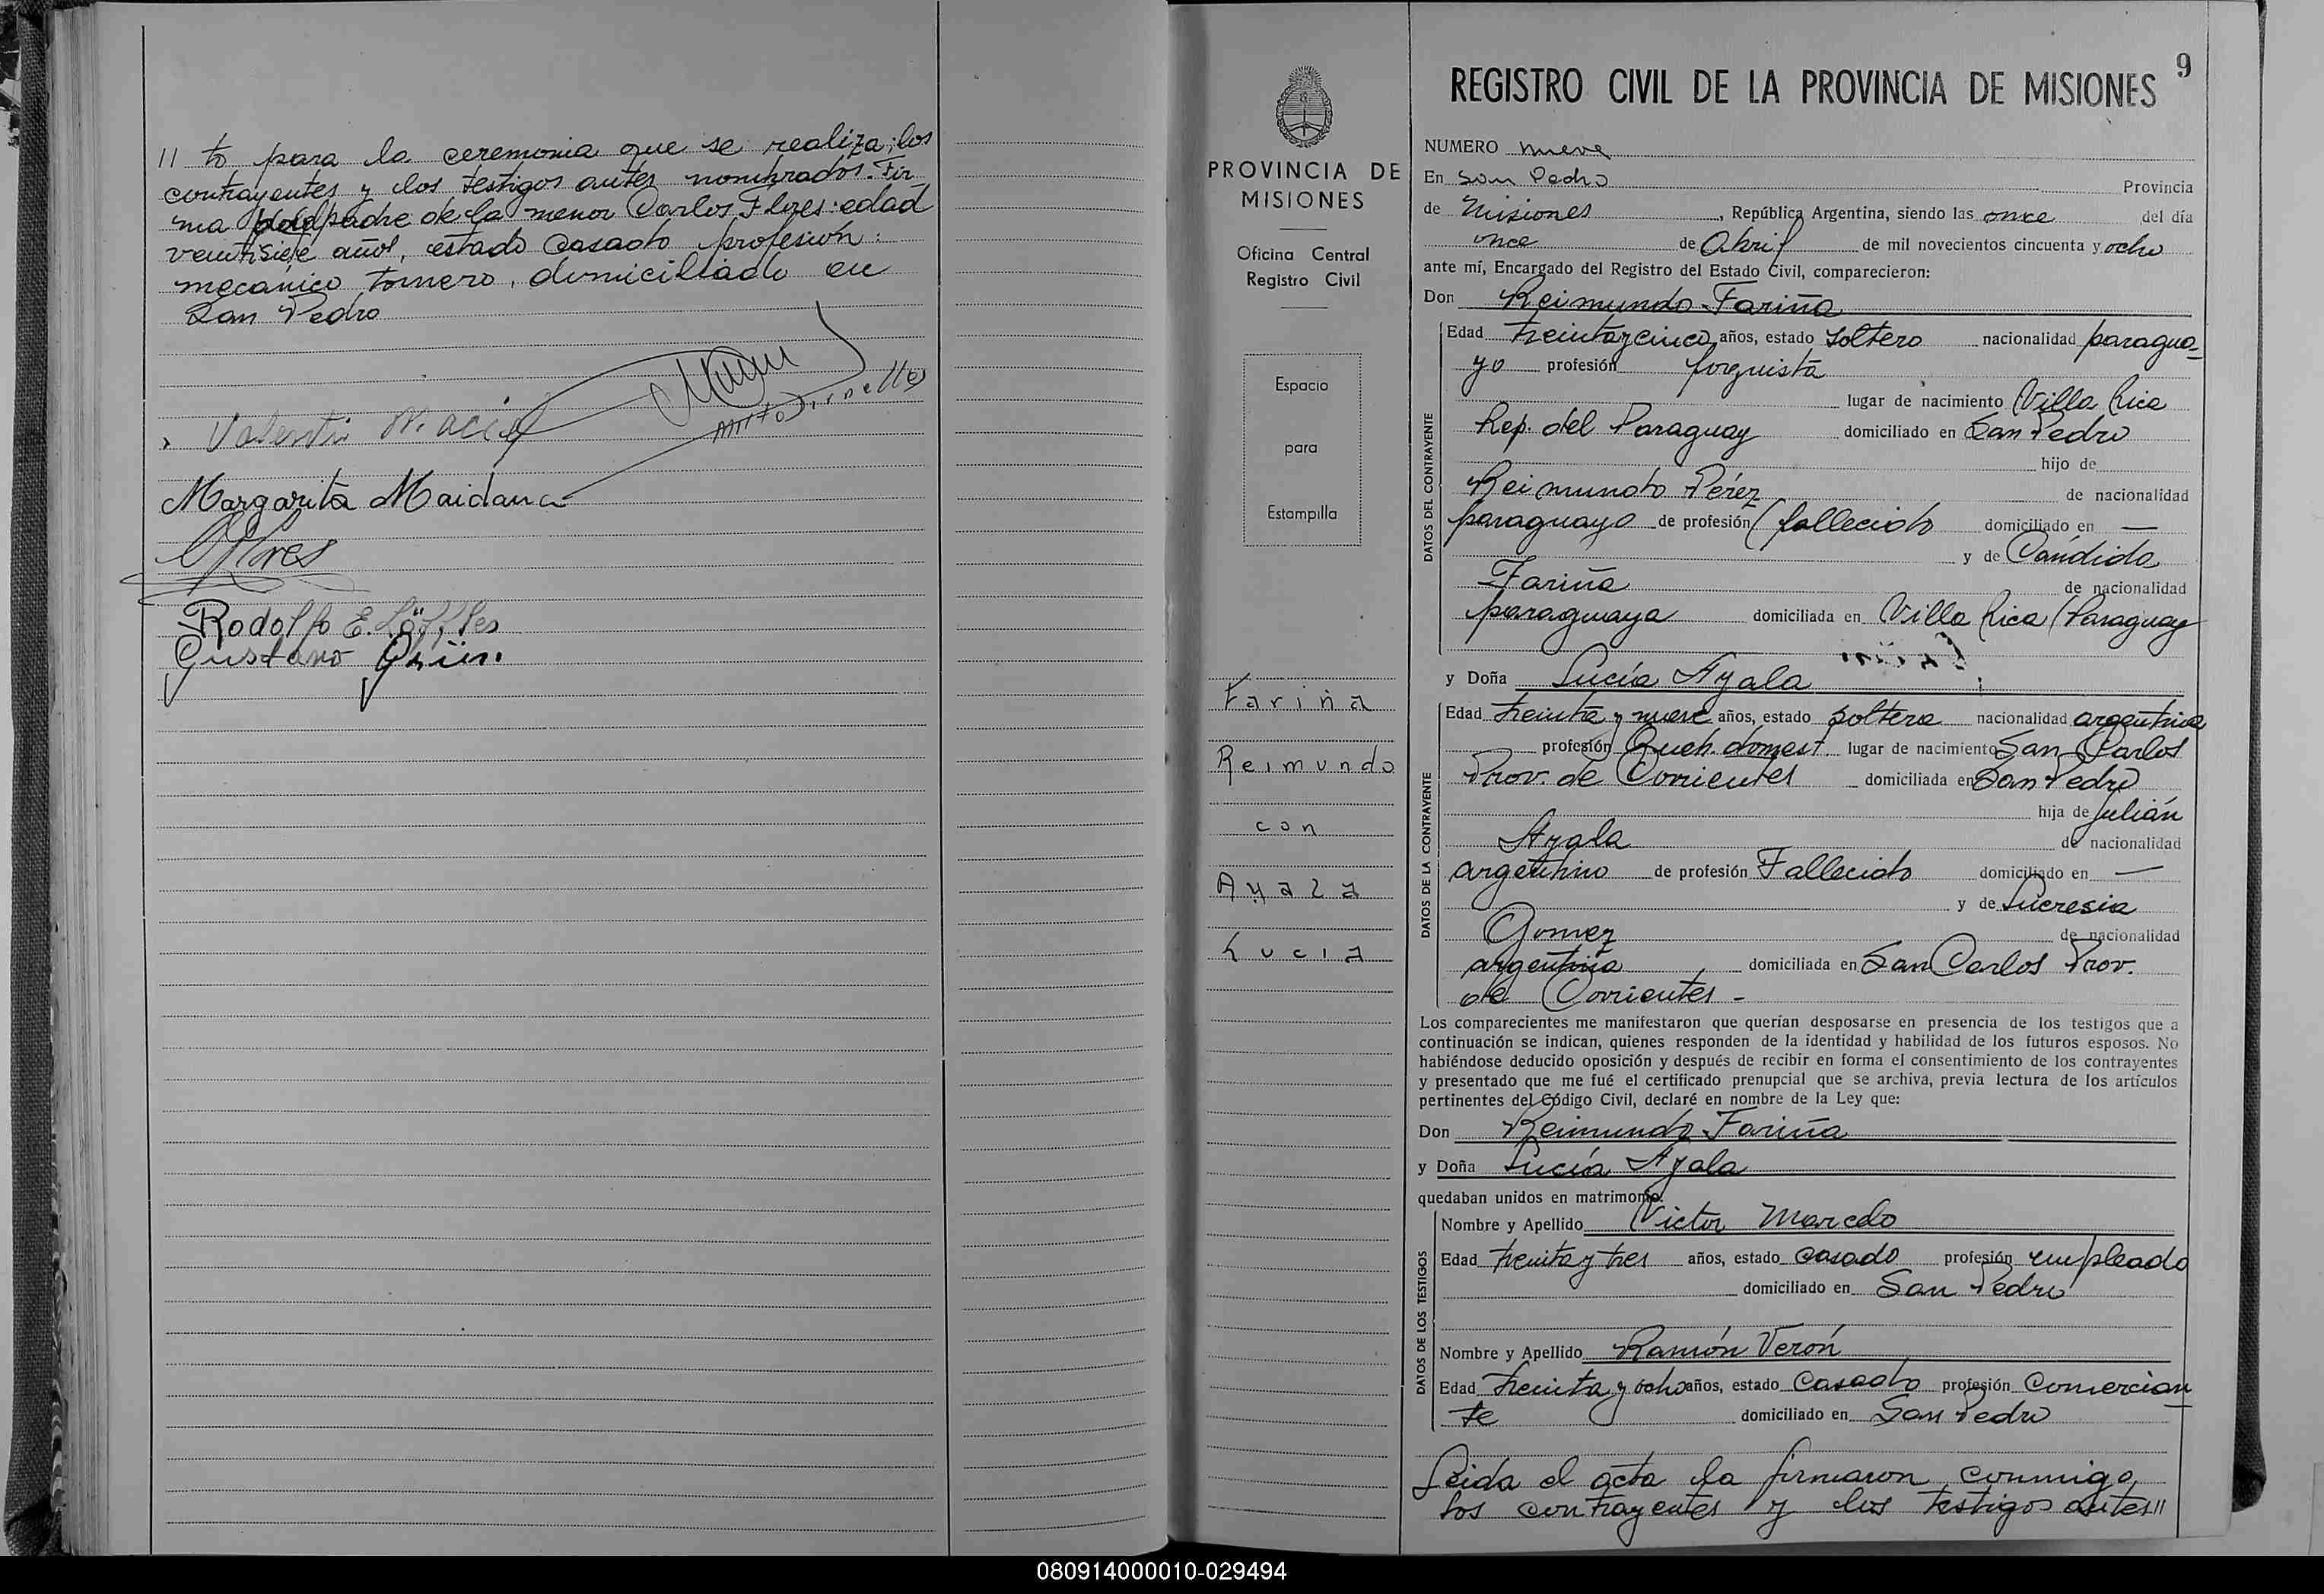 // to para la ceremonia que se realiza; los
contrayentes y los testigos antes nombrados. Fir
ma padre de la menor Carlos Flores: edad
veintisiete años, estado casado profesión:
mecánico tornero, domiciliado en
San Pedro
Valentin
Margarita Maidana
Flores
Rodolfo E.
Gustavo Grün.
PROVINCIA DE
MISIONES
Oficina Central
Registro Civil
Espacio
para
Estampilla
Fariña
Reimundo
con
Ayala
Lucia
9
REGISTRO CIVIL DE LA PROVINCIA DE MISIONES
NUMERO nueve
En San Pedro Provincia
de Misiones, República Argentina, siendo las once del día
once de Abril de mil novecientos cincuenta y ocho
ante mí, Encargado del Registro del Estado Civil, comparecieron:
Don Reimundo Fariña
DATOS DEL CONTRAYENTE
Edad treintaycinco años, estado soltero nacionalidad paragua-
yo profesión foguista
lugar de nacimiento Villa Rica
Rep. del Paraguay domiciliado en San Pedro
hijo de
Reimundo Pérez de nacionalidad
paraguayo de profesión (fallecido domiciliado en —
y de Cándida
Fariña de nacionalidad
paraguaya domiciliada en Villa Rica (Paraguay
y Doña Lucía Ayala
DATOS DE LA CONTRAYENTE
Edad treinta y nueve años, estado soltera nacionalidad argentina
profesión Queh. domest. lugar de nacimiento San Carlos
Prov. de Corrientes domiciliada en San Pedro
hija de Julián
Ayala de nacionalidad
argentino de profesión Fallecido domiciliado en —
y de Lucresia
Gomez de nacionalidad
argentina domiciliada en San Carlos Prov.
de Corrientes -
Los comparecientes me manifestaron que querían desposarse en presencia de los testigos que a
continuación se indican, quienes responden de la identidad y habilidad de los futuros esposos. No
habiéndose deducido oposición y después de recibir en forma el consentimiento de los contrayentes
y presentado que me fué el certificado prenupcial que se archiva, previa lectura de los artículos
pertinentes del Código Civil, declaré en nombre de la Ley que:
Don Reimundo Fariña
y Doña Lucía Ayala
quedaban unidos en matrimonio.
DATOS DE LOS TESTIGOS
Nombre y Apellido Victor Marcelo
Edad treinta y tres años, estado casado profesión empleado
domiciliado en San Pedro
Nombre y Apellido Ramón Verón
Edad treinta y ocho años, estado Casado profesión Comercian
te domiciliado en San Pedro
Leida el acta la firmaron conmigo
los contrayentes y los testigos antes//
080914000010-029494